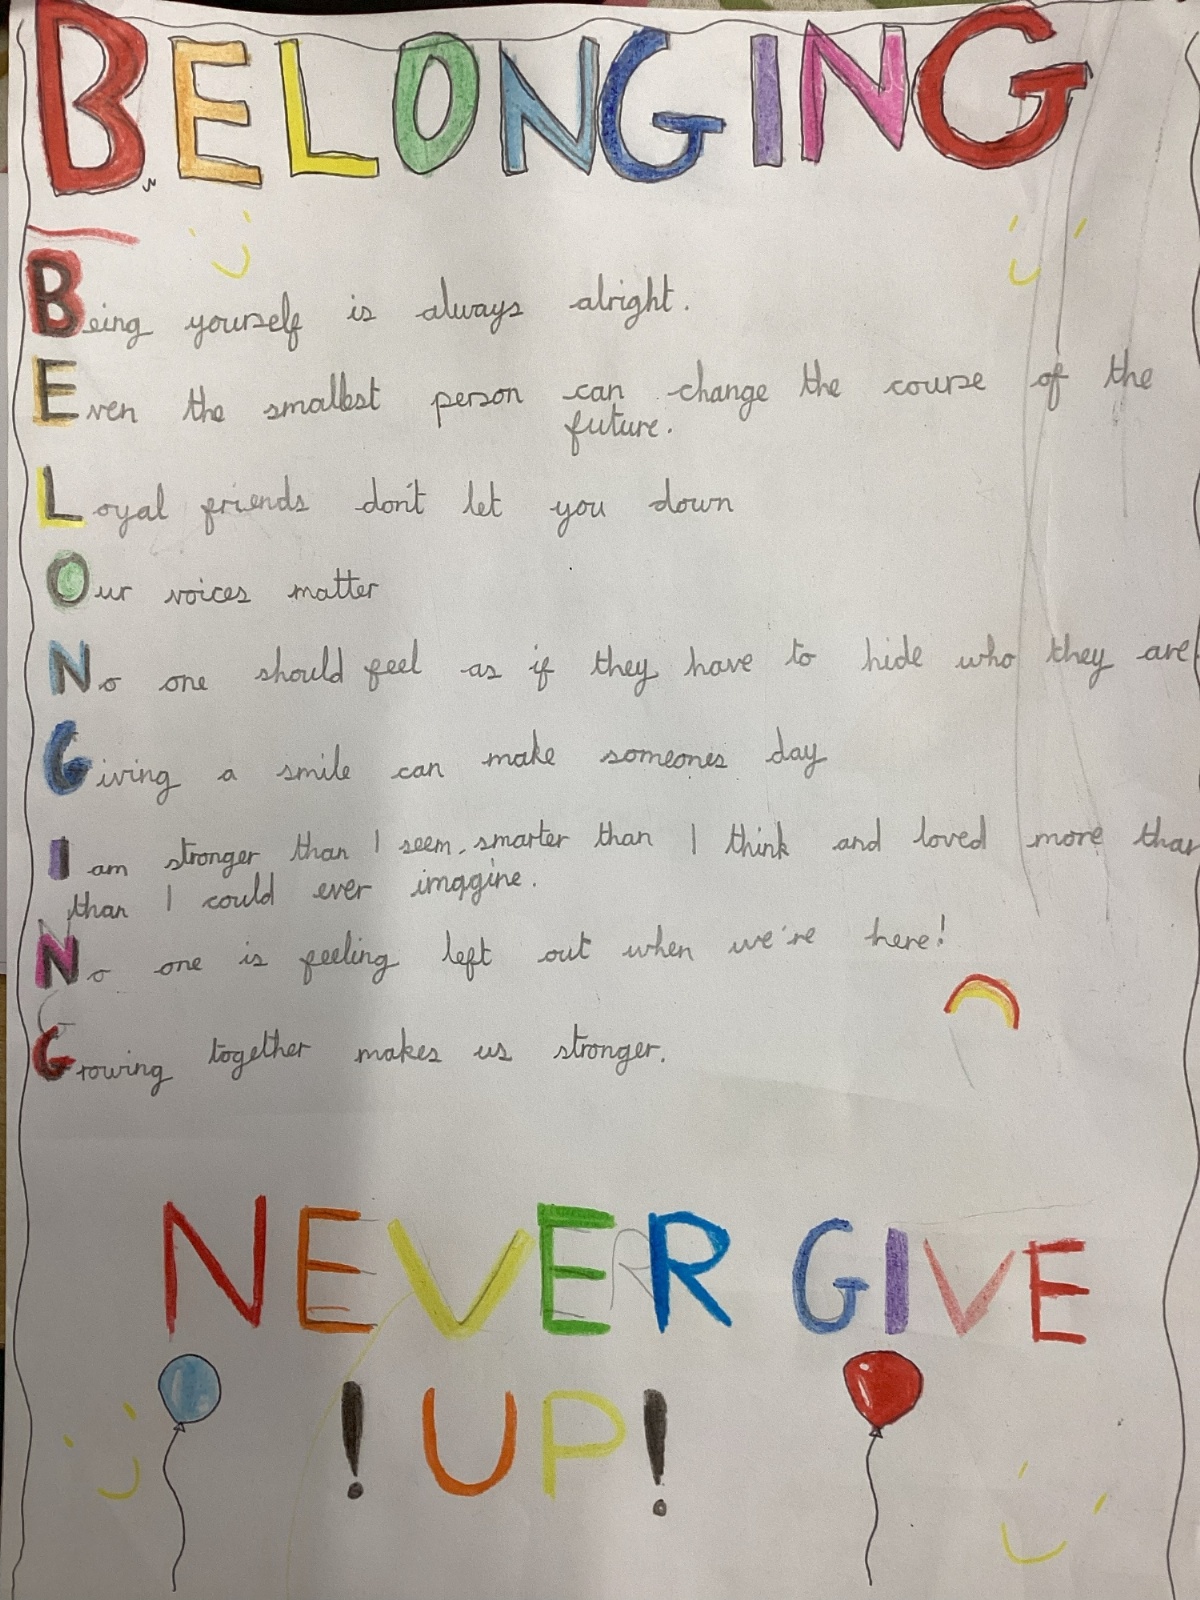 BELONGING
Being yourself is always alright.
Even the smallest person can change the course of the
future.
Loyal friends don't let you down
Our voices matter
No one should feel as if they have to hide who they are.
Giving a smile can make someones day
I am stronger than I seem, smarter than I think and loved more than
than I could ever imagine.
No one is feeling left out when we're here!
Growing together makes us stronger.
NEVER GIVE
! UP!